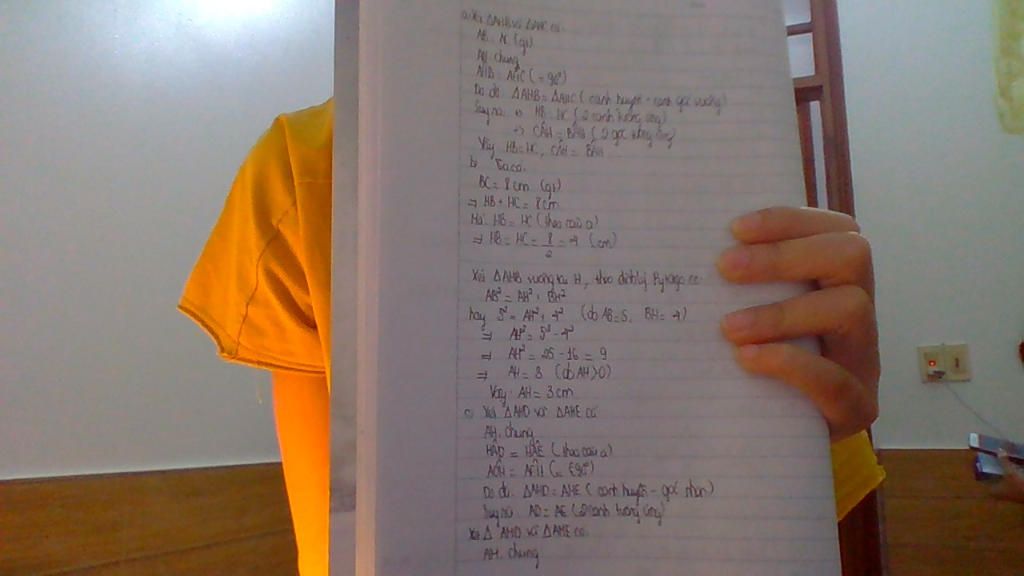 a. Xét ΔAHB và ΔAHC có:
AB = AC (gt)
AH chung
AHB = AHC (= 90°)
Do đó ΔAHB = ΔAHC (cạnh huyền - cạnh góc vuông)
Suy ra: => HB = HC (2 cạnh tương ứng)
=> CÂH = BÂH (2 góc tương ứng)
Vậy HB = HC, CÂH = BÂH
b. Ta có:
BC = 8 cm (gt)
=> HB + HC = 8 cm
Mà: HB = HC (theo câu a)
=> HB = HC = 8/2 = 4 (cm)
Xét ΔAHB vuông tại H, theo định lý Pytago có:
AB² = AH² + BH²
hay 5² = AH² + 4² (do AB = 5, BH = 4)
=> AH² = 5² - 4²
=> AH² = 25 - 16 = 9
=> AH = 3 (do AH > 0)
Vậy: AH = 3 cm
c) Xét ΔAHD và ΔAHE có:
AH. chung
HÂD = HÂE (theo câu a)
(= 90°)
Do đó: ΔAHD = AHE (cạnh huyền - góc nhọn)
Suy ra AD = AE (2 cạnh tương ứng)
Xét Δ AHD và ΔAHE có:
AH. chung